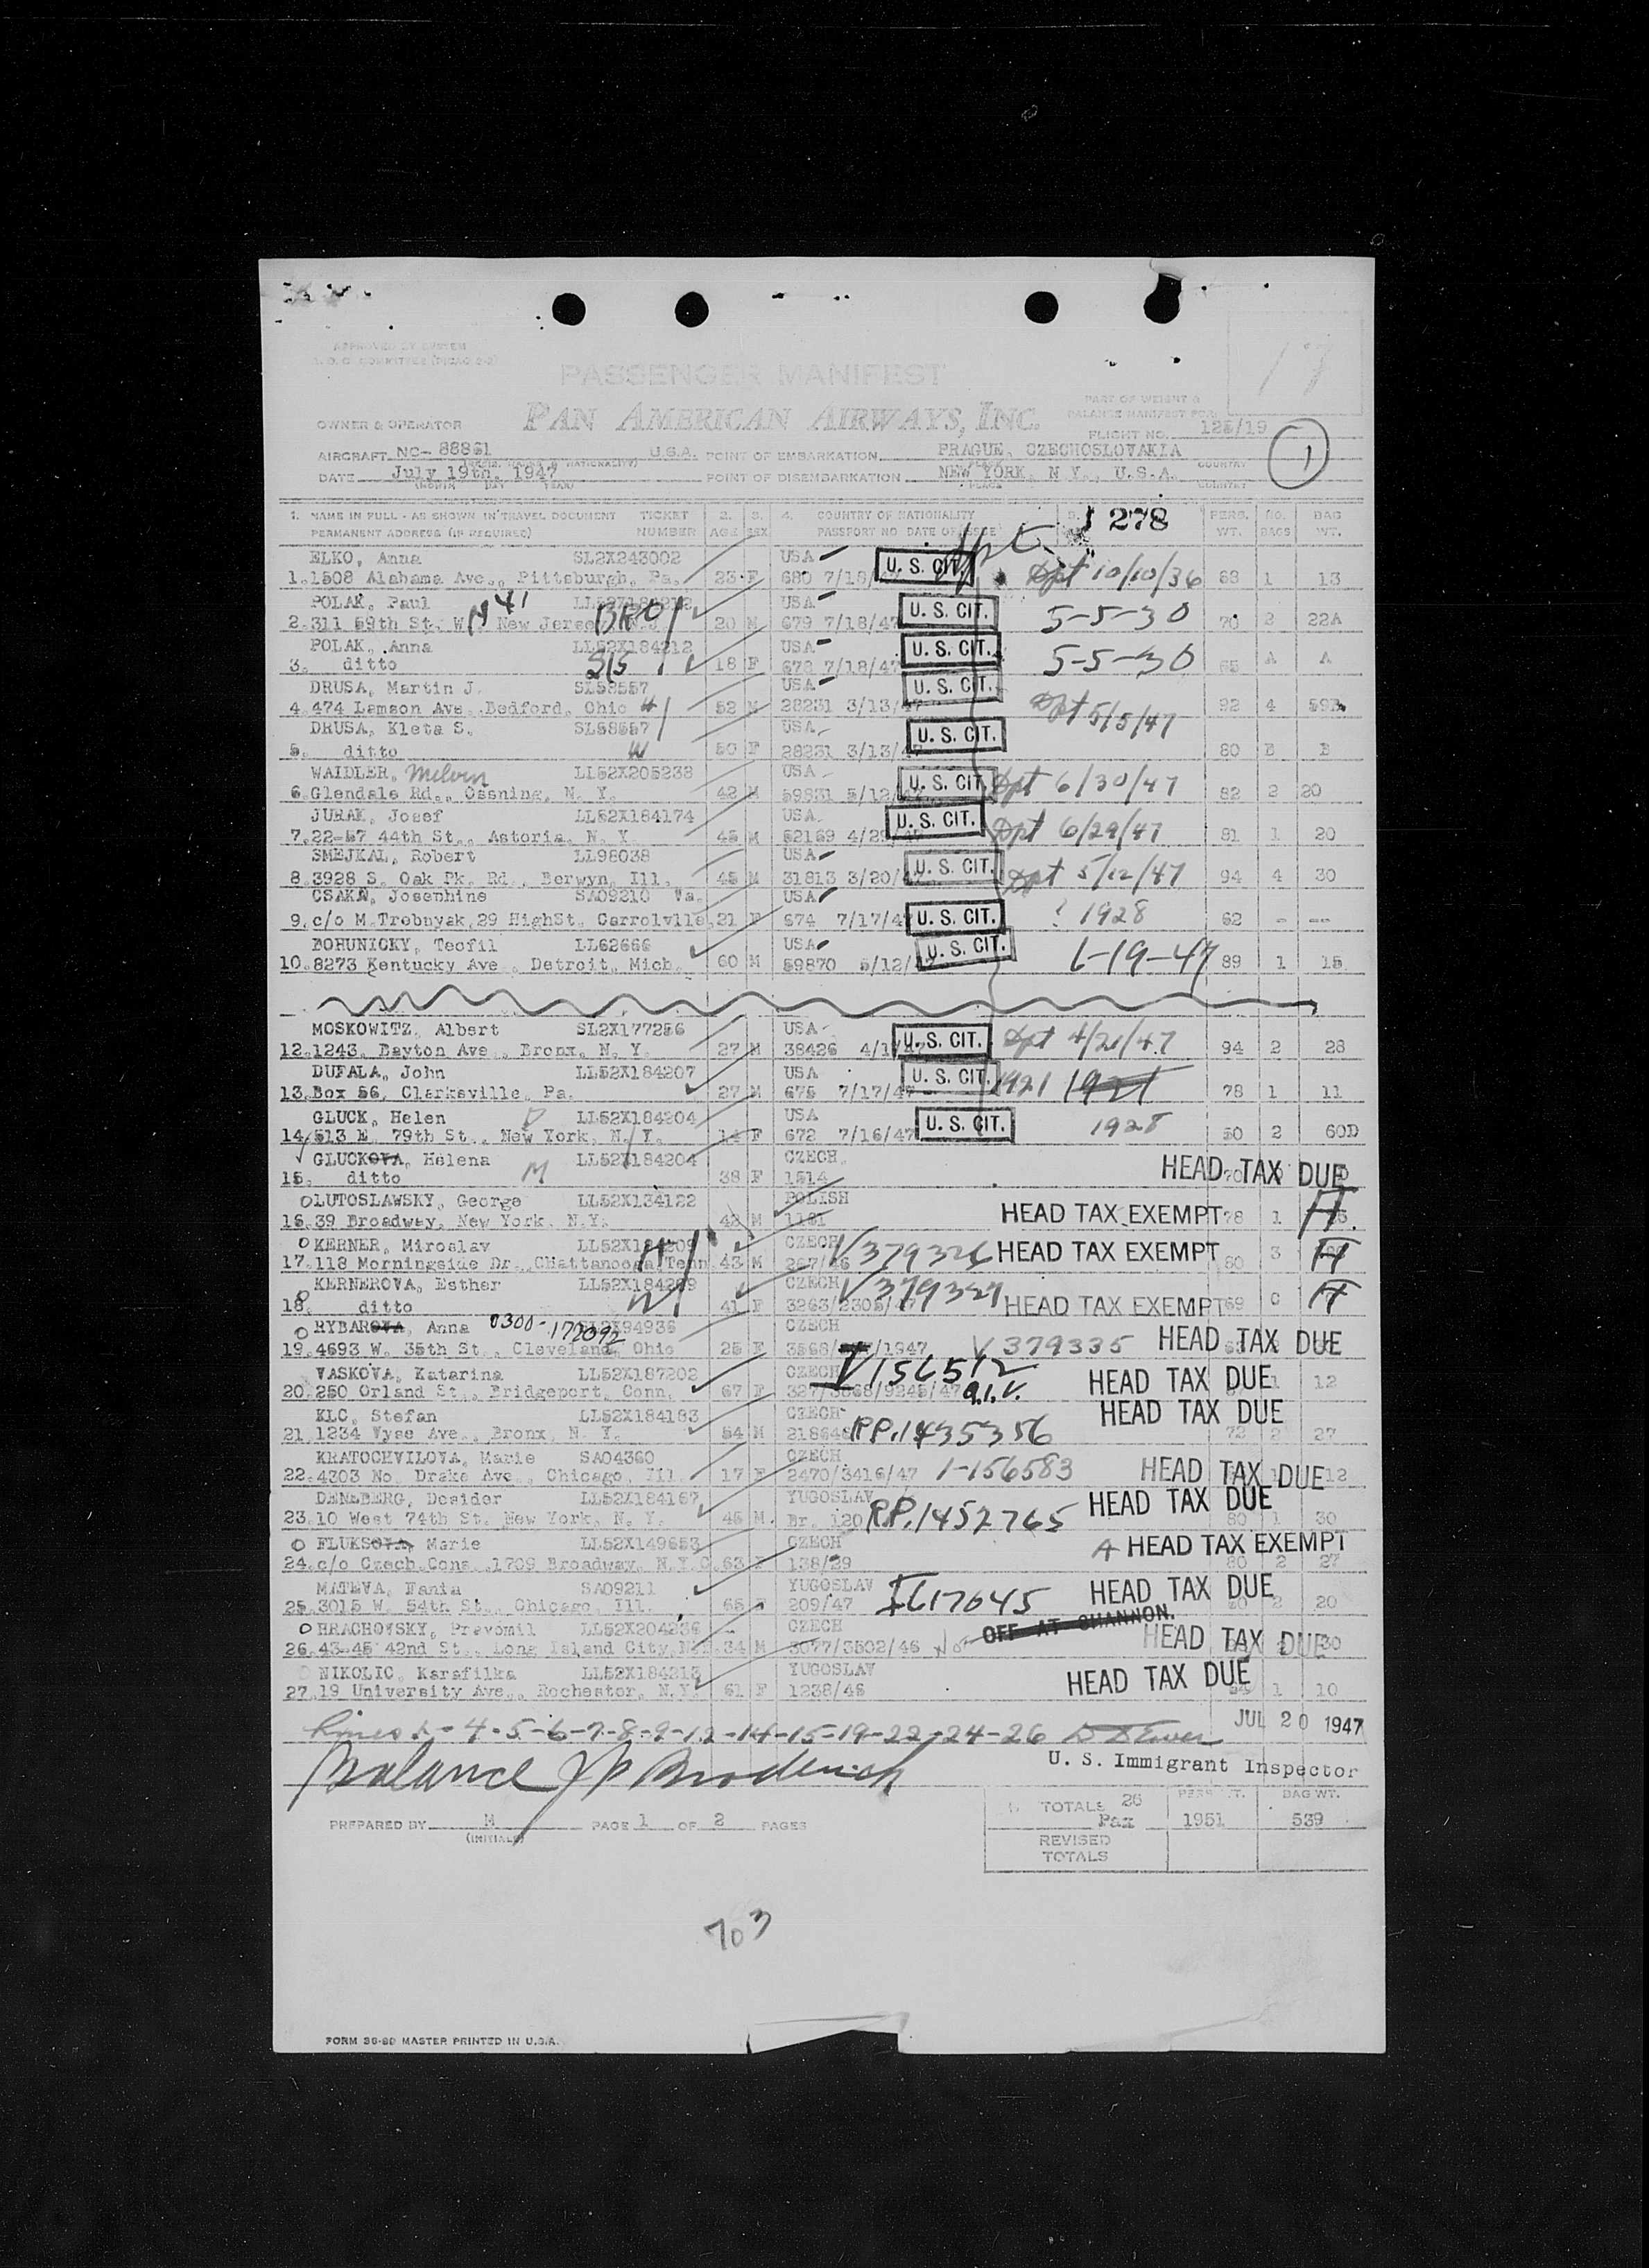 APPROVED BY SYSTEM
17
PASSENGER MANIFEST
PART OF WEIGHT &
BALANCE MANIFEST FOR
OWNER & OPERATOR PAN AMERICAN AIRWAYS, INC. FLIGHT NO. 125/19
AIRCRAFT NC- 88861 U.S.A. POINT OF EMBARKATION PRAGUE, CZECHOSLOVAKIA
DATE July 19th, 1947 POINT OF DISEMBARKATION NEW YORK, N Y., U.S.A. 1
(MONTH DAY YEAR) PLACE COUNTRY
1. NAME IN FULL - AS SHOWN IN TRAVEL DOCUMENT TICKET 2. 3. 4. COUNTRY OF NATIONALITY 278 PERS. NO. BAG
PERMANENT ADDRESS (IN REQUIRED) NUMBER AGE SEX PASSPORT NO DATE OF ISSUE WT. BAGS WT.
ELKO, Anna SL2X243002 USA
1. 1508 Alabama Ave., Pittsburgh, Pa. 23 F 680 7/18/ U. S. CIT. Dpt 10/10/36 68 1 13
POLAK, Paul USA
2. 311 59th St. W. New Jersey BRO 20 M 679 7/18/47 U. S. CIT. 5-5-30 70 2 22A
POLAK, Anna LL52X184212 USA
3. ditto SIS 18 F 678 7/18/47 U. S. CIT. 5-5-30 65 A A
DRUSA, Martin J. SL58557 USA
4. 474 Lamson Ave. Bedford, Ohio H 52 M 28231 3/13/47 U. S. CIT. Dpt 5/5/47 92 4 59B
DRUSA, Kleta S. SL58557 USA
5. ditto W 50 F 28231 3/13/47 U. S. CIT. 80 B B
WAIDLER, Melvin LL52X205238 USA
6. Glendale Rd., Ossning, N. Y. 42 M 59831 5/12/ U. S. CIT. Dpt 6/30/47 82 2 20
JURAK, Josef LL52X184174 USA
7. 22-57 44th St., Astoria, N. Y. 45 M 52169 4/29/47 U. S. CIT. Dpt 6/29/47 81 1 20
SMEJKAL, Robert LL98038 USA
8. 3928 S. Oak Pk. Rd., Berwyn, Ill. 45 M 31813 3/20/47 U. S. CIT. Dpt 5/12/47 94 4 30
CSAKN, Josephine SA09210 Va. USA
9. c/o M.Trobnyak, 29 HighSt. Carrolville 21 F 674 7/17/47 U. S. CIT. ? 1928 62 - --
BOHUNICKY, Teofil LL62666 USA
10. 8273 Kentucky Ave., Detroit, Mich. 60 M 59870 5/12/ U. S. CIT. 6-19-47 89 1 15
MOSKOWITZ, Albert SL2X177256 USA
12. 1243, Bayton Ave., Bronx, N. Y. 27 M 38426 4/1/ U. S. CIT. Dpt 4/21/47 94 2 28
DUFALA, John LL52X184207 USA
13. Box 56, Clarksville, Pa. 27 M 675 7/17/47 U. S. CIT. 1921 1921 78 1 11
GLUCK, Helen D LL52X184204 USA
14. 513 E. 79th St., New York, N. Y. 14 F 672 7/16/47 U. S. CIT. 1928 50 2 60D
GLUCKOVA, Helena LL52X184204 CZECH
15. ditto M 38 F 1514 HEAD TAX DUE
LUTOSLAWSKY, George LL52X134122 POLISH
16. 39 Broadway, New York, N.Y. 42 M 1181 HEAD TAX EXEMPT 78 1
KERNER, Miroslav CZECH
17. 118 Morningside Dr. CHattanooga, Tenn H 43 M 267/46 V379326 HEAD TAX EXEMPT 80 3
KERNEROVA, Esther LL52X184209 CZECH
18. ditto W 41 F 3263/2305/47 V379327 HEAD TAX EXEMPT 69 C
RYBAROVA, Anna 0300-172092 SL2X94936 CZECH
19. 4693 W. 35th St., Cleveland, Ohio 25 F 3568/ /1947 V 379335 HEAD TAX DUE
VASKOVA, Katarina LL52X187202 CZECH
20. 250 Orland St., Bridgeport, Conn. 67 F 327/3868/9245/47 V156512 HEAD TAX DUE 1 12
KLC, Stefan LL52X184183 CZECH
21. 1234 Vyse Ave., Bronx, N. Y. 54 M 218648 R.P.1435356 HEAD TAX DUE 72 2 27
KRATOCHVILOVA, Marie SA04360 CZECH
22. 4303 No. Drake Ave., Chicago, Ill. 17 F 2470/3416/47 1-156583 HEAD TAX DUE 12
DENEBERG, Desider LL52X184167 YUGOSLAV
23. 10 West 74th St. New York, N. Y. 45 M. Br. 120 R.P.1452765 HEAD TAX DUE 80 1 30
FLUKSOVA, Marie LL52X149653 CZECH
24. c/o Czech.Cons. 1709 Broadway, N.Y.C. 63 F 138/29 A HEAD TAX EXEMPT 80 2 27
MATEVA, Fania SA09211 YUGOSLAV
25. 3015 W. 54th St., Chicago, Ill. 65 F 209/47 I617645 HEAD TAX DUE 2 20
HRACHOVSKY, Prevomil LL52X204236 CZECH
26. 43-45 42nd St., Long Island City, N.Y. 34 M 3077/3502/46 OFF AT SHANNON. HEAD TAX DUE 30
NIKOLIC, Karafilka LL52X184213 YUGOSLAV
27. 19 University Ave., Rochester, N.Y. 61 F 1238/46 HEAD TAX DUE 54 1 10
Lines 1-4-5-6-7-8-9-12-14-15-19-22-24-26 JUL 20 1947
Balance J P Broderick U. S. Immigrant Inspector
TOTALS 26 Pax PERS WT. 1951 BAG WT. 539
PREPARED BY M PAGE 1 OF 2 PAGES
(INITIALS)
REVISED
TOTALS
703
FORM 36-80 MASTER PRINTED IN U.S.A.